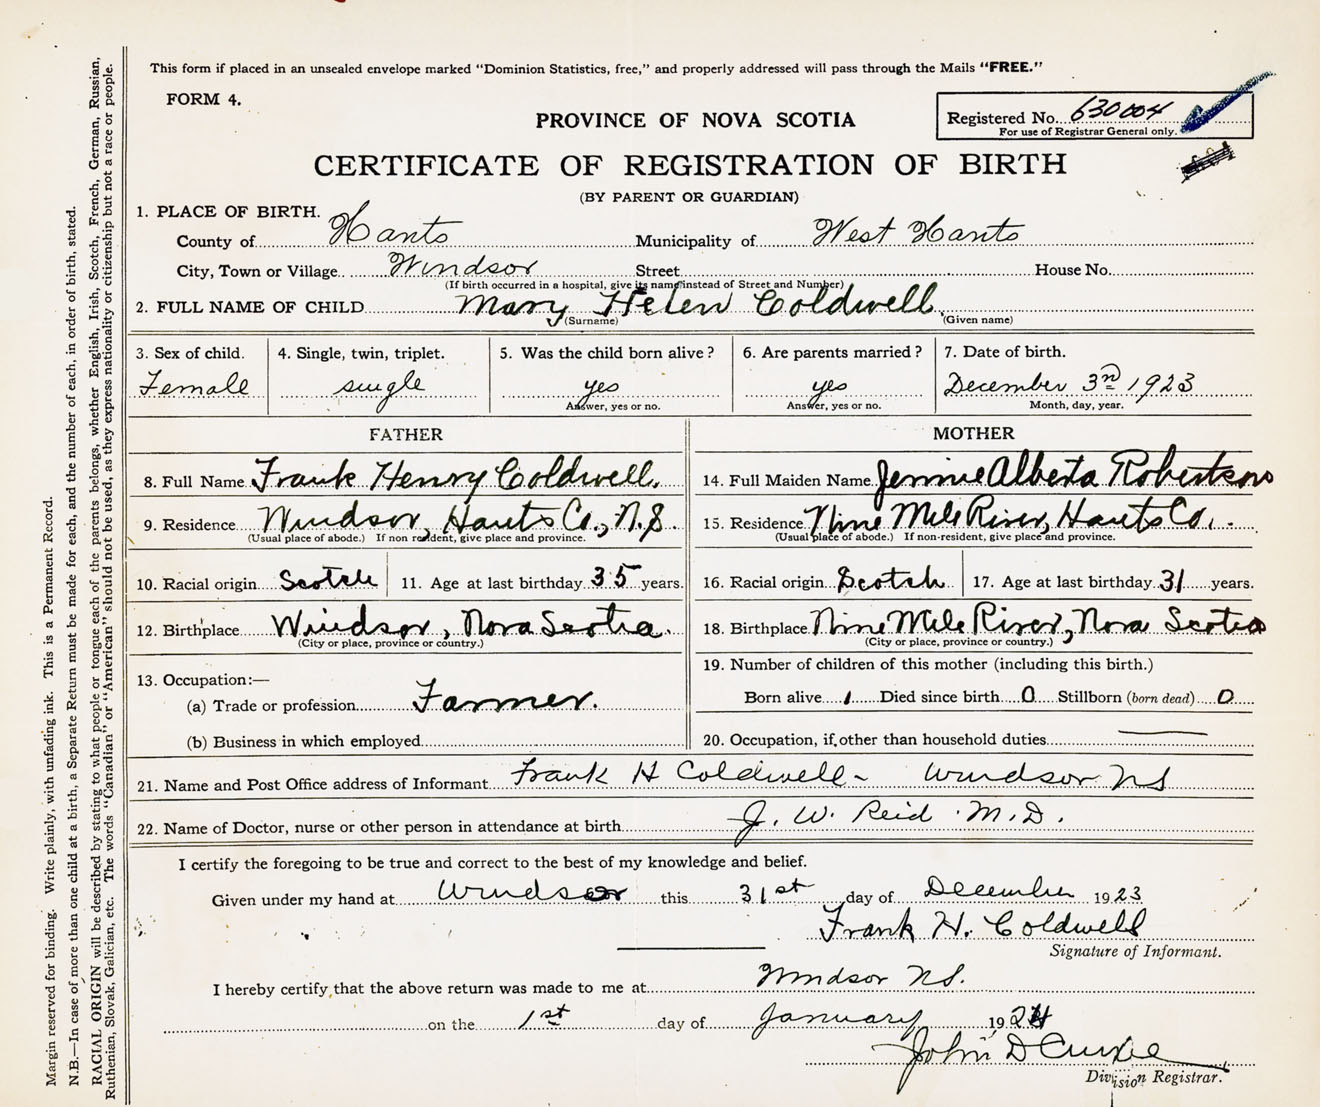 This form if placed in an unsealed envelope marked "Dominion Statistics, free," and properly addressed will pass through the Mails "FREE."
FORM 4.
Registered No. 630004
For use of Registrar General only.
PROVINCE OF NOVA SCOTIA
CERTIFICATE OF REGISTRATION OF BIRTH
(BY PARENT OR GUARDIAN)
1. PLACE OF BIRTH.
County of Hants Municipality of West Hants
City, Town or Village Windsor Street House No.
(If birth occurred in a hospital, give its name instead of Street and Number)
2. FULL NAME OF CHILD Mary Helen Coldwell
(Surname) (Given name)
3. Sex of child. 4. Single, twin, triplet. 5. Was the child born alive? 6. Are parents married? 7. Date of birth.
Female single yes yes December 3rd 1923
Answer, yes or no. Answer, yes or no. Month, day, year.
FATHER
8. Full Name Frank Henry Coldwell.
9. Residence Windsor, Hants Co., N.S.
(Usual place of abode.) If non resident, give place and province.
10. Racial origin Scotch 11. Age at last birthday 35 years.
12. Birthplace Windsor, Nova Scotia.
(City or place, province or country.)
13. Occupation:—
(a) Trade or profession Farmer.
(b) Business in which employed
MOTHER
14. Full Maiden Name Jennie Alberta Robertson
15. Residence Nine Mile River, Hants Co.
(Usual place of abode.) If non-resident, give place and province.
16. Racial origin Scotch 17. Age at last birthday 31 years.
18. Birthplace Nine Mile River, Nova Scotia
(City or place, province or country.)
19. Number of children of this mother (including this birth.)
Born alive 1 Died since birth 0 Stillborn (born dead) 0
20. Occupation, if other than household duties
21. Name and Post Office address of Informant Frank H Coldwell - Windsor NS
22. Name of Doctor, nurse or other person in attendance at birth J. W. Reid M.D.
I certify the foregoing to be true and correct to the best of my knowledge and belief.
Given under my hand at Windsor this 31st day of December 1923
Frank H. Coldwell
Signature of Informant.
I hereby certify that the above return was made to me at Windsor NS.
on the 1st day of January 1924
John D Currie
Division Registrar.
Margin reserved for binding. Write plainly, with unfading ink. This is a Permanent Record.
N.B.—In case of more than one child at a birth, a Separate Return must be made for each, and the number of each, in order of birth, stated.
RACIAL ORIGIN will be described by stating to what people or tongue each of the parents belongs, whether English, Irish, Scotch, French, German, Russian,
Ruthenian, Slovak, Galician, etc. The words "Canadian" or "American" should not be used, as they express nationality or citizenship but not a race or people.